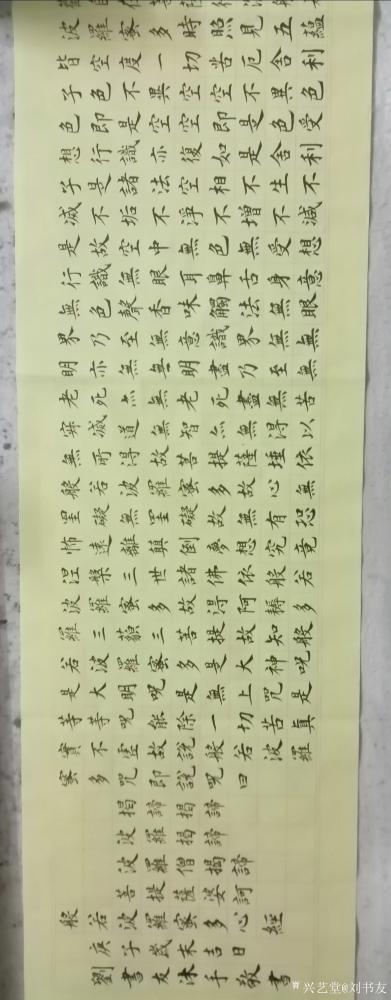 波羅蜜多時照見五蘊
皆空度一切苦厄舍利
子色不異空空不異色
色即是空空即是色受
想行識亦復如是舍利
子是諸法空相不生不
滅不垢不淨不增不減
是故空中無色無受想
行識無眼耳鼻舌身意
無色聲香味觸法無眼
界乃至無意識界無無
明亦無無明盡乃至無
老死亦無老死盡無苦
滅道無智亦無得以
無所得故菩提薩埵依
般若波羅蜜多故心無
罣礙無罣礙故無有恐
怖遠離顛倒夢想究竟
涅槃三世諸佛依般若
波羅蜜多故得阿耨多
羅三藐三菩提故知般
若波羅蜜多是大神咒
是大明呪是無上咒是
等等呪能除一切苦真
實不虛故說般若波羅
蜜多咒即說呪曰
揭諦揭諦
波羅揭諦
波羅僧揭諦
菩提薩婆訶
般若波羅蜜多心經
庚子歲末吉日
劉書友沐手敬書
兴艺堂@刘书友